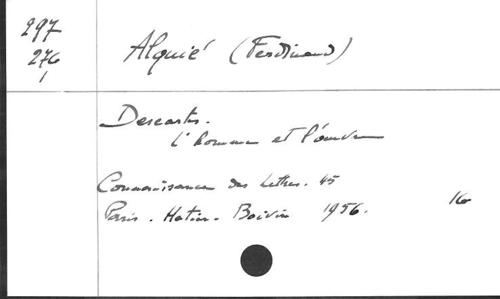 297
276
1
Alquié (Ferdinand)
Descartes.
L'homme et l'œuvre
Connaissance des Lettres. 45
Paris. Hatier-Boivin 1956. 16